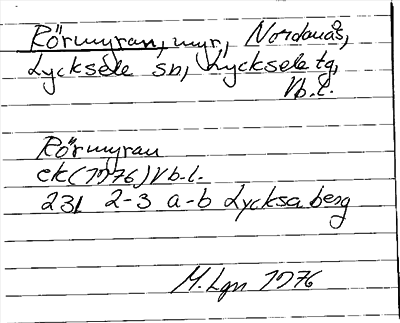 Rörmyran, myr, Nordanås,
Lycksele sn, Lycksele tg,
Vb.l.
Rörmyran
ek (1976) Vb.l.
231 2-3 a-b Lycksaberg
M. Lgn 1976